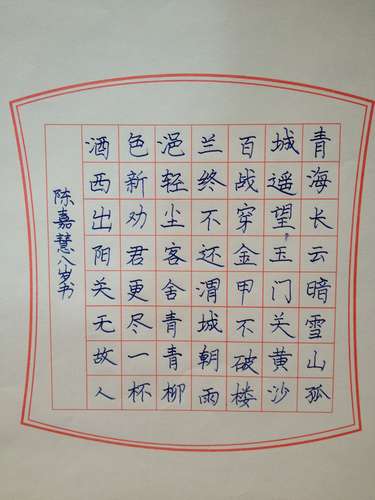 青海长云暗雪山孤
城遥望玉门关黄沙
百战穿金甲不破楼
兰终不还渭城朝雨
浥轻尘客舍青青柳
色新劝君更尽一杯
酒西出阳关无故人
陈嘉慧八岁书